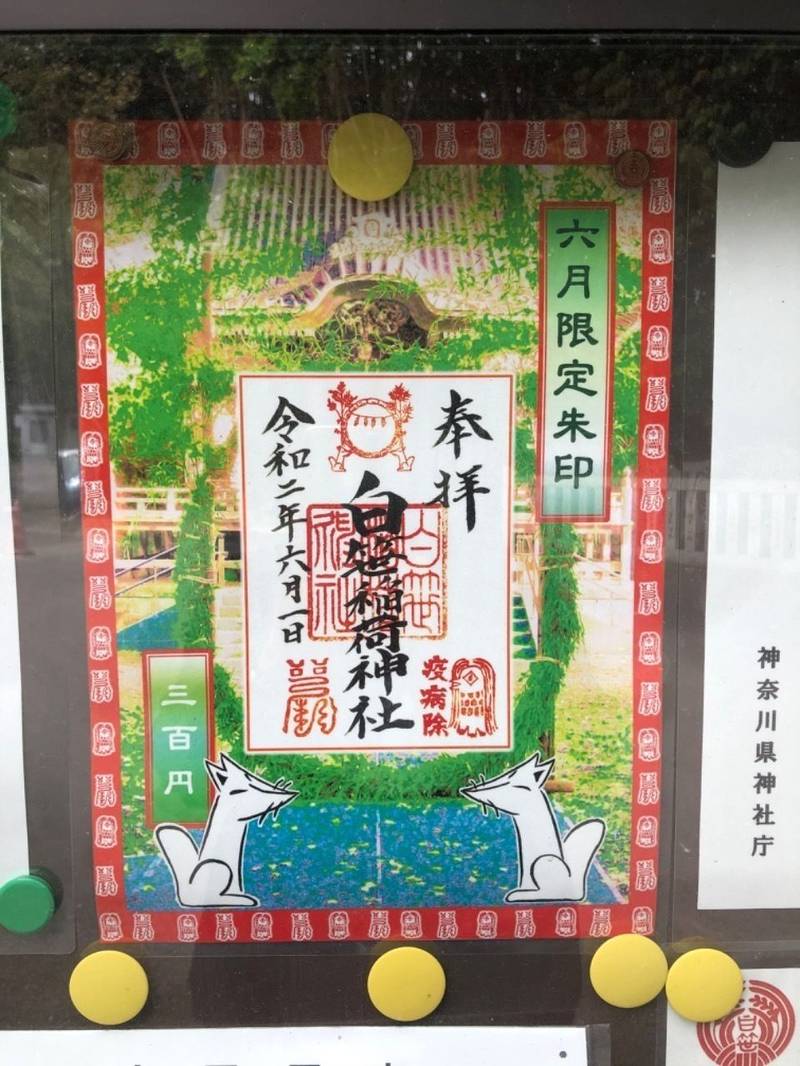 六月限定朱印
奉拝
白笹稲荷神社
令和二年六月一日
白笹
神社
疫病除
三百円
神奈川県神社庁
白笹